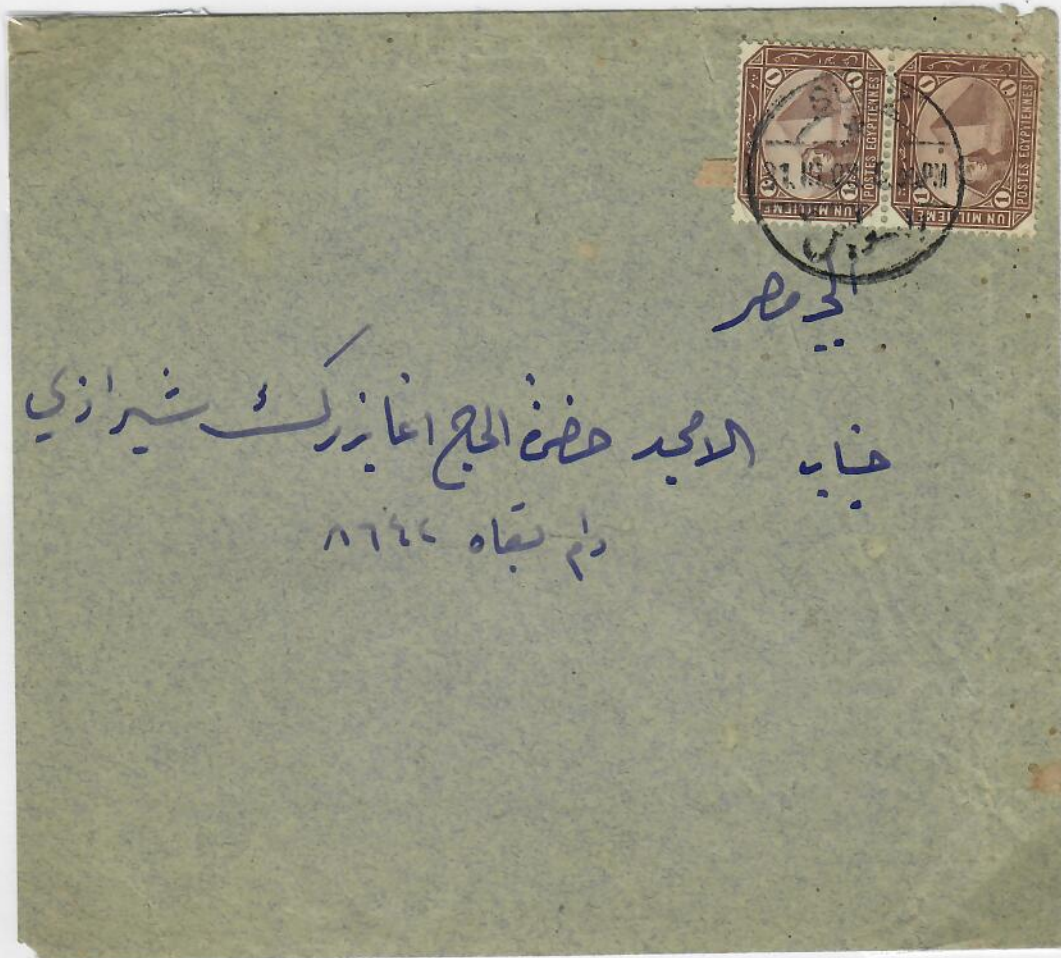 POSTES EGYPTIENNES
UN MILLIEME
1 1 1
POSTES EGYPTIENNES
UN MILLIEME
1 1 1
السويس
الى مصر
جناب الامجد حضرة الحاج اغا بزرك شيرازي
دام بقاه ٨٦٤٢